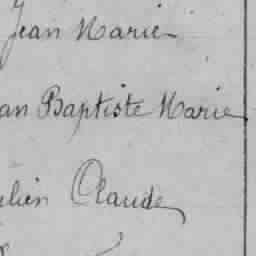 Jean Marie
an Baptiste Marie
ulien Claude